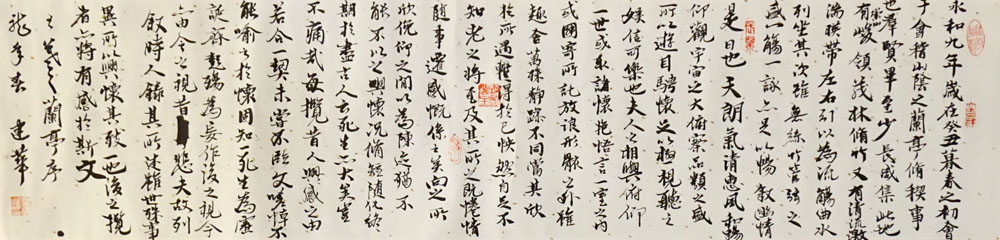 永和九年歲在癸丑暮春之初會
于會稽山陰之蘭亭脩稧事
也群賢畢至少長咸集此地
有崇山峻領茂林脩竹又有清流激
湍暎帶左右引以為流觴曲水
列坐其次雖無絲竹管弦之
盛一觴一詠亦足以暢敘幽情
是日也天朗氣清惠風和暢
仰觀宇宙之大俯察品類之盛
所以遊目騁懷足以極視聽之
娛信可樂也夫人之相與俯仰
一世或取諸懷抱悟言一室之內
或因寄所託放浪形骸之外雖
趣舍萬殊靜躁不同當其欣
於所遇蹔得於己怏然自足不
知老之將至及其所之既惓情
隨事遷感慨係之矣向之所
欣俛仰之閒以為陳迹猶不
能不以之興懷況脩短隨化終
期於盡古人云死生亦大矣豈
不痛哉每攬昔人興感之由
若合一契未嘗不臨文嗟悼不
能喻之於懷固知一死生為虛
誕齊彭殤為妄作後之視今
亦由今之視昔悲夫故列
敘時人錄其所述雖世殊事
異所以興懷其致一也後之攬
者亦將有感於斯文
王羲之蘭亭序
龍年春 建華